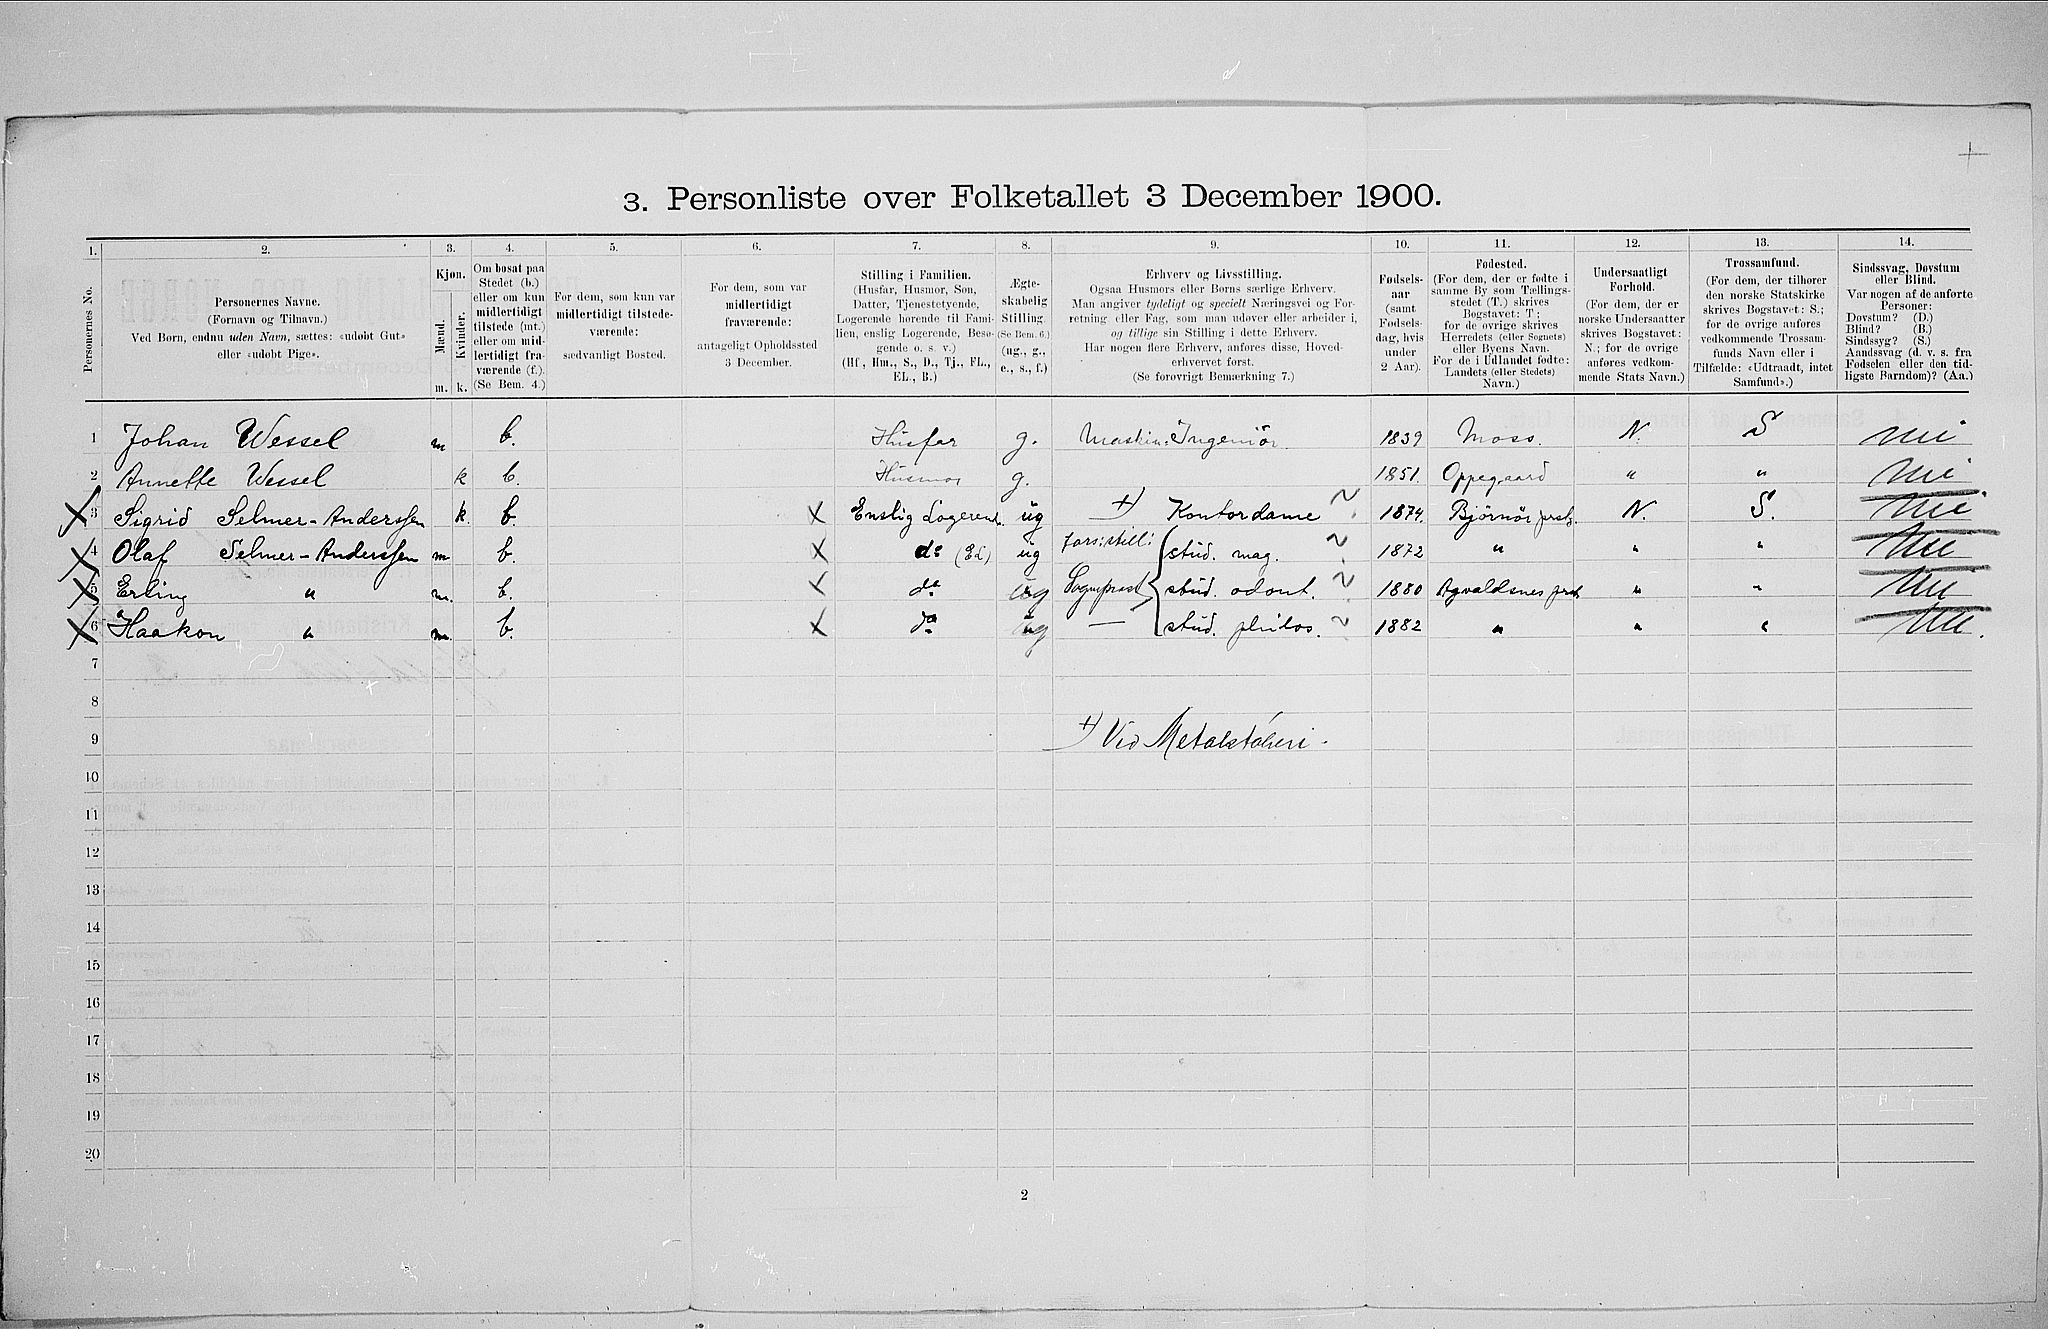 3. Personliste over Folketallet 3 December 1900.
1. 2. 3. 4. 5. 6. 7. 8. 9. 10. 11. 12. 13. 14.
Personernes No.
Personernes Navne.
(Fornavn og Tilnavn.)
Ved Børn, endnu uden Navn, sættes: «udøbt Gut»
eller «udøbt Pige».
Kjøn.
Mænd.
Kvinder.
m. k.
Om bosat paa
Stedet (b.)
eller om kun
midlertidigt
tilstede (mt.)
eller om mid-
lertidigt fra-
værende (f.).
(Se Bem. 4.)
For dem, som kun var
midlertidigt tilstede-
værende:
sædvanligt Bosted.
For dem, som var
midlertidigt
fraværende:
antageligt Opholdssted
3 December.
Stilling i Familien.
(Husfar, Husmor, Søn,
Datter, Tjenestetyende,
Logerende hørende til Fami-
lien, enslig Logerende, Besø-
gende o. s. v.)
(Hf, Hm., S., D., Tj., FL.,
EL., B.)
Ægte-
skabelig
Stilling.
(Se Bem. 6.)
(ug., g.,
e., s., f.)
Erhverv og Livsstilling.
Ogsaa Husmors eller Børns særlige Erhverv.
Man angiver tydeligt og specielt Næringsvei og For-
retning eller Fag, som man udøver eller arbeider i,
og tillige sin Stilling i dette Erhverv.
Har nogen flere Erhverv, anføres disse, Hoved-
erhvervet først.
(Se forøvrigt Bemærkning 7.)
Fødsels-
aar
(samt
Fødsels-
dag, hvis
under
2 Aar).
Fødested.
(For dem, der er fødte i
samme By som Tællings-
stedet (T.) skrives
Bogstavet: T;
for de øvrige skrives
Herredets (eller Sognets)
eller Byens Navn.
For de i Udlandet fødte:
Landets (eller Stedets)
Navn.)
Undersaatligt
Forhold.
(For dem, der er
norske Undersaatter
skrives Bogstavet:
N.; for de øvrige
anføres vedkom-
mende Stats Navn.)
Trossamfund.
(For dem, der tilhører
den norske Statskirke
skrives Bogstavet: S.;
for de øvrige anføres
vedkommende Trossam-
funds Navn eller i
Tilfælde: «Udtraadt, intet
Samfund».)
Sindssvag, Døvstum
eller Blind.
Var nogen af de anførte
Personer:
Døvstum? (D.)
Blind? (B.)
Sindssyg? (S.)
Aandssvag (d. v. s. fra
Fødselen eller den tid-
ligste Barndom)? (Aa.)
1 Johan Wessel m b. Husfar g. Maskin-Ingeniør 1839 Moss. N. S
2 Annette Wessel k b. Husmor g. 1851. Oppegaard " "
3 Sigrid Selmer-Anderssen k. b. X Enslig Logerend. ug +) Kontordame ? 1874. Bjørnør prst. N. S.
4 Olaf Selmer-Anderssen m b. X do (EL) ug Fars: still: stud. mag. ? 1872 " " "
5 Erling " m. b. X do ug Sogneprest stud. odont. ? 1880 Agvaldsnes prst. " "
6 Haakon " m. b. X do ug — stud. philos. ? 1882 " " "
7
8
9 +) Vid Metalstøberi.
10
11
12
13
14
15
16
17
18
19
20
2